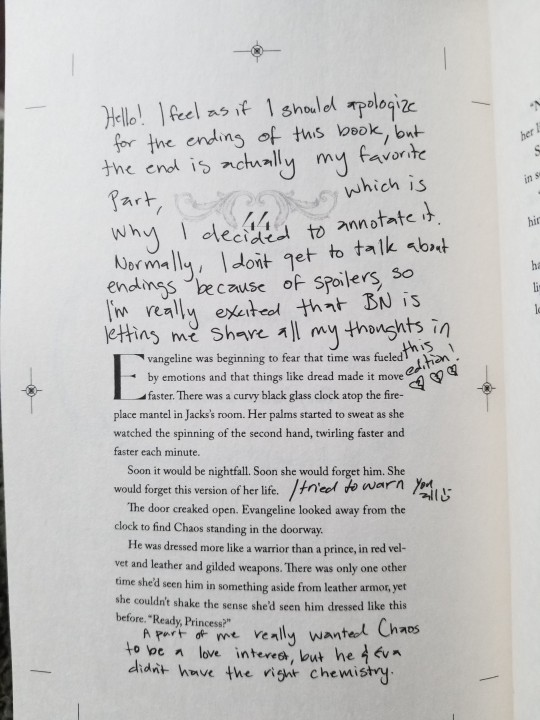 Hello! I feel as if I should apologize
for the ending of this book, but
the end is actually my favorite
part, which is
44
why I decided to annotate it.
Normally, I don't get to talk about
endings because of spoilers, so
I'm really excited that BN is
letting me share all my thoughts in
this
edition!
Evangeline was beginning to fear that time was fueled
by emotions and that things like dread made it move
faster. There was a curvy black glass clock atop the fire-
place mantel in Jacks's room. Her palms started to sweat as she
watched the spinning of the second hand, twirling faster and
faster each minute.
Soon it would be nightfall. Soon she would forget him. She
would forget this version of her life. I tried to warn you
all
The door creaked open. Evangeline looked away from the
clock to find Chaos standing in the doorway.
He was dressed more like a warrior than a prince, in red vel-
vet and leather and gilded weapons. There was only one other
time she'd seen him in something aside from leather armor, yet
she couldn't shake the sense she'd seen him dressed like this
before. "Ready, Princess?"
A part of me really wanted Chaos
to be a love interest, but he & Eva
didn't have the right chemistry.